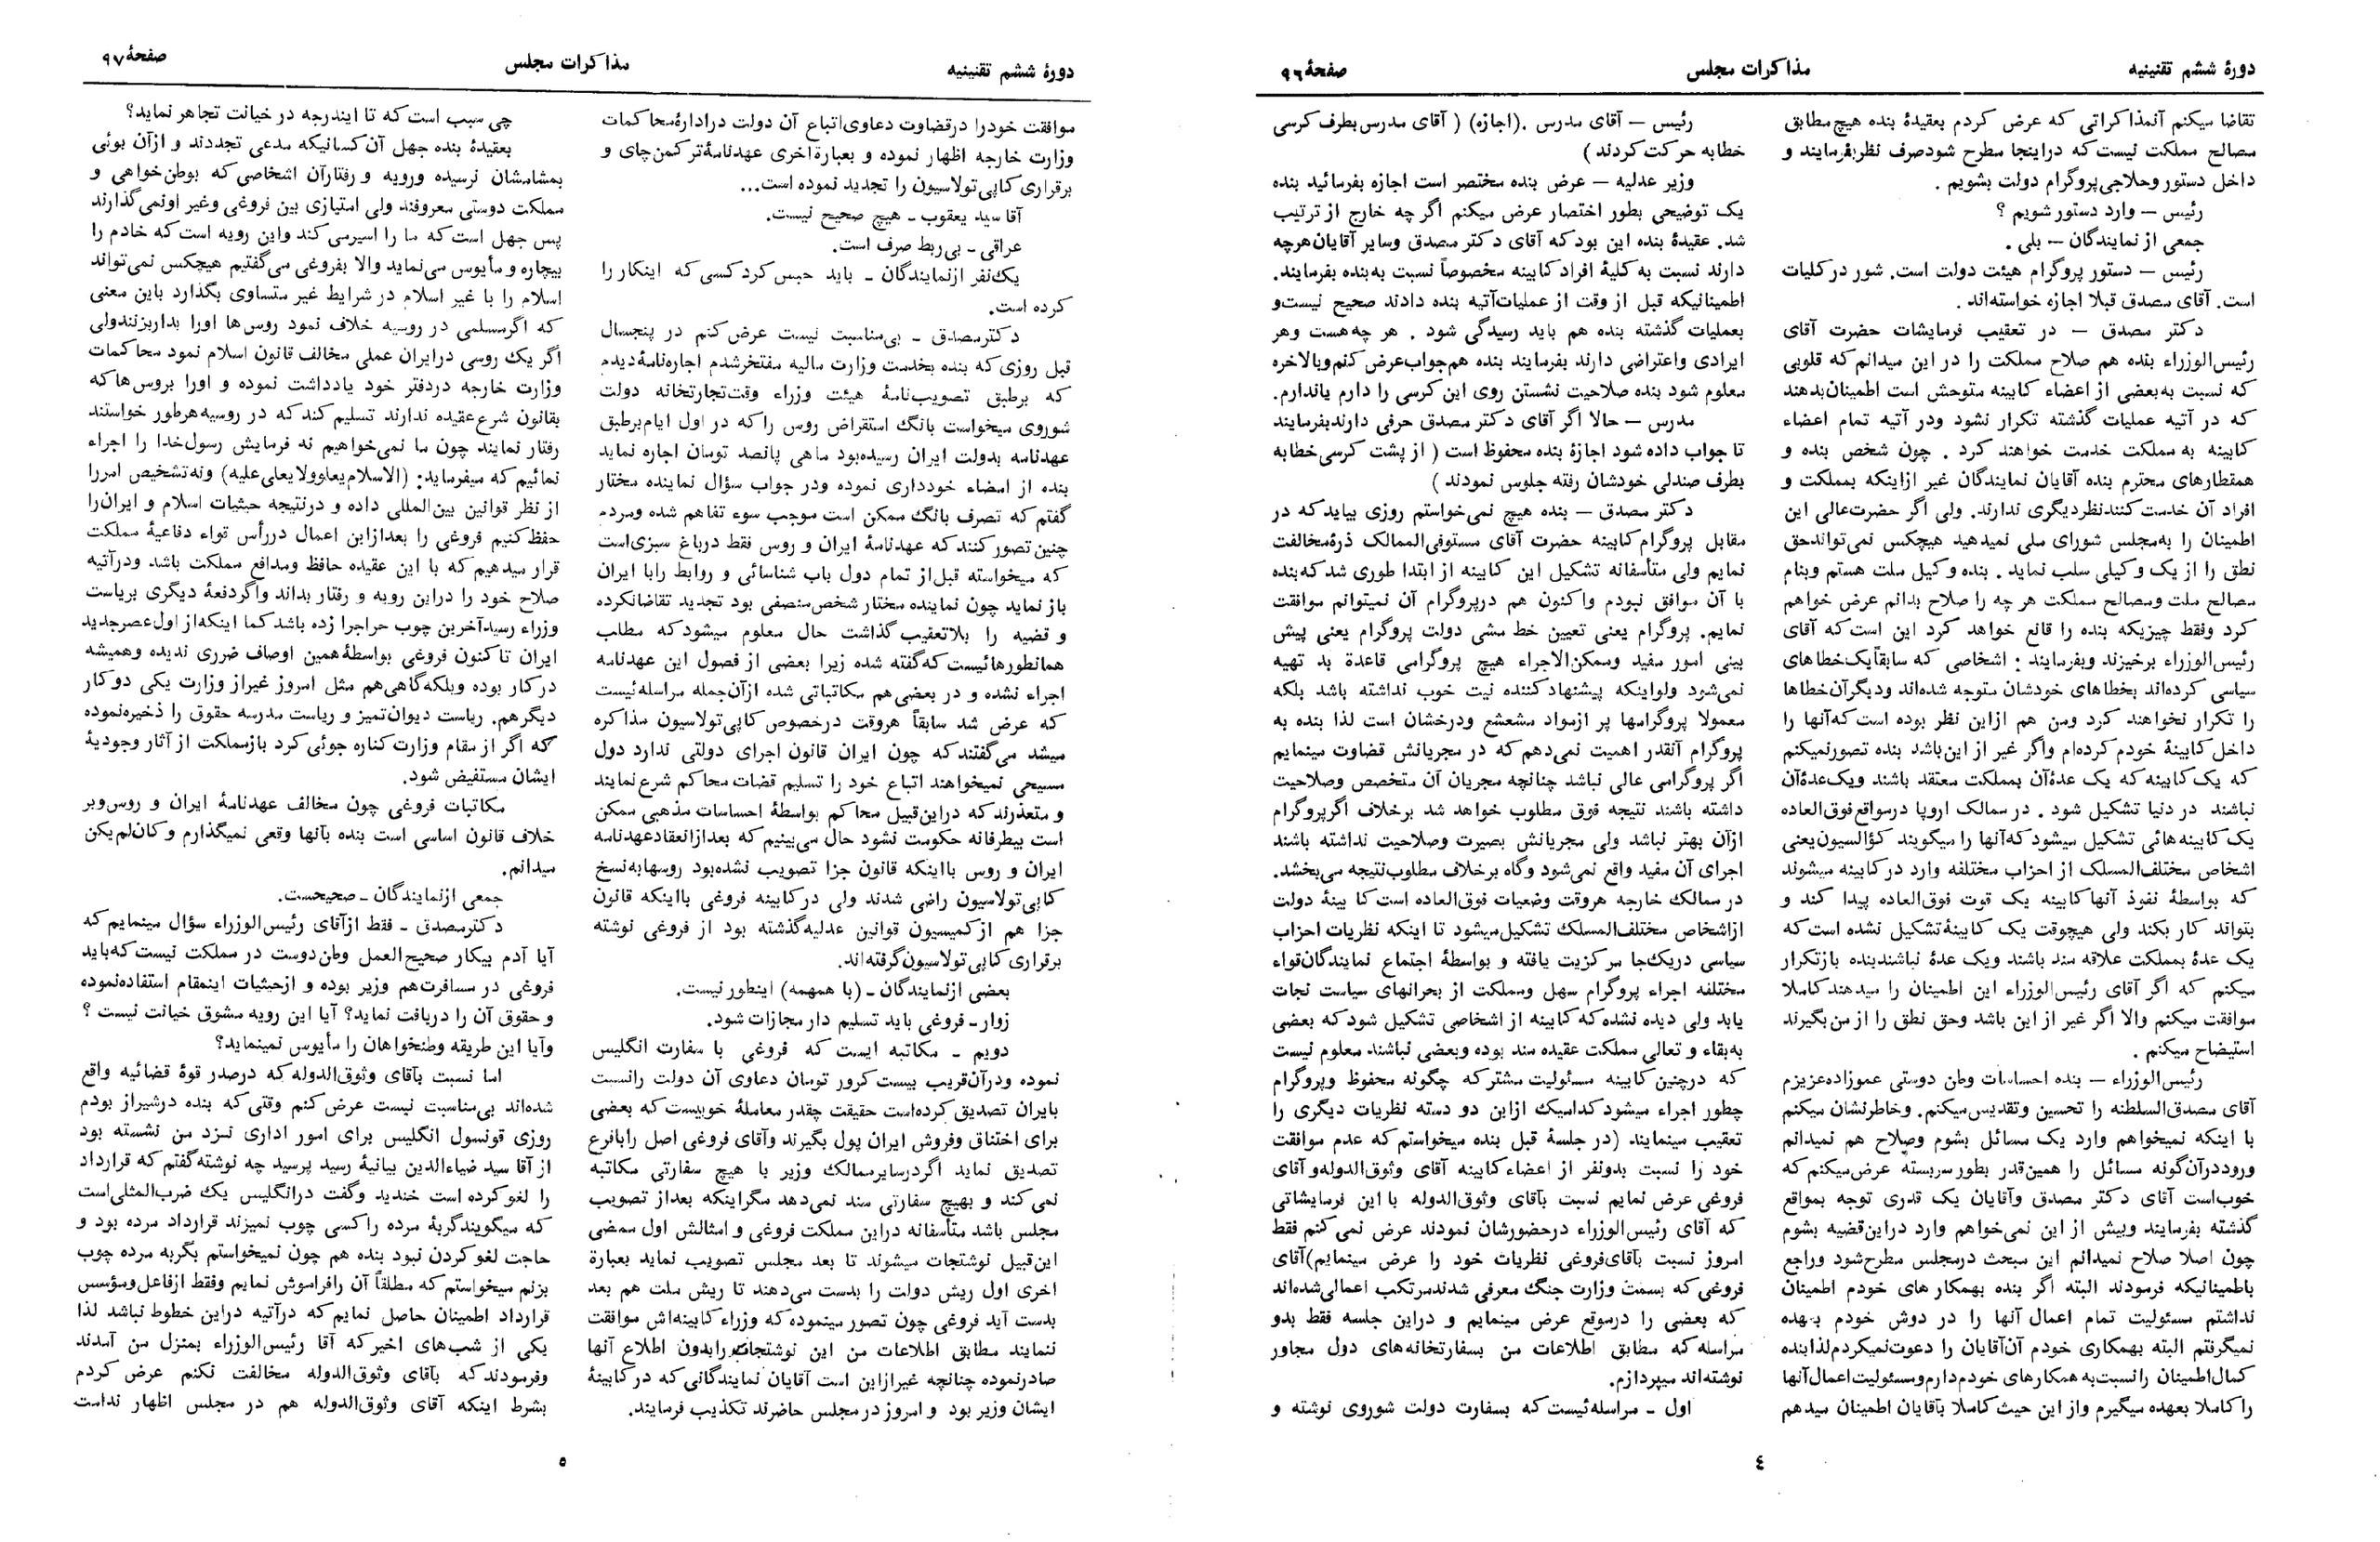 دورهٔ ششم تقنینیه
مذاکرات مجلس
صفحهٔ ۹۶
تقاضا میکنم آنمذاکراتی که عرض کردم بعقیدهٔ بنده هیچ مطابق
مصالح مملکت نیست که دراینجا مطرح شودصرف نظربفرمایند و
داخل دستور وحلاجی پروگرام دولت بشویم .
رئیس – وارد دستور شویم ؟
جمعی از نمایندگان – بلی .
رئیس – دستور پروگرام هیئت دولت است. شور در کلیات
است. آقای مصدق قبلا اجازه خواسته‌اند .
دکتر مصدق – در تعقیب فرمایشات حضرت آقای
رئیس‌الوزراء بنده هم صلاح مملکت را در این میدانم که قلوبی
که نسبت به‌بعضی از اعضاء کابینه متوحش است اطمینان‌بدهند
که در آتیه عملیات گذشته تکرار نشود ودر آتیه تمام اعضاء
کابینه به مملکت خدمت خواهند کرد . چون شخص بنده و
همقطارهای محترم بنده آقایان نمایندگان غیر ازاینکه بمملکت و
افراد آن خدمت کنندنظردیگری ندارند. ولی اگر حضرت‌عالی این
اطمینان را به‌مجلس شورای ملی نمیدهید هیچکس نمی‌تواندحق
نطق را از یک وکیلی سلب نماید . بنده وکیل ملت هستم وبنام
مصالح ملت ومصالح مملکت هر چه را صلاح بدانم عرض خواهم
کرد وفقط چیزیکه بنده را قانع خواهد کرد این است که آقای
رئیس‌الوزراء برخیزند وبفرمایند : اشخاصی که سابقاً یک‌خطاهای
سیاسی کرده‌اند بخطاهای خودشان متوجه شده‌اند ودیگرآن‌خطاها
را تکرار نخواهند کرد ومن هم ازاین نظر بوده است‌که‌آنها را
داخل کابینهٔ خودم کرده‌ام واگر غیر از این‌باشد بنده تصورنمیکنم
که یک کابینه که یک عده‌آن بمملکت معتقد باشند ویک‌عدهٔ‌آن
نباشند در دنیا تشکیل شود . در ممالک اروپا درمواقع فوق‌العاده
یک کابینه‌هائی تشکیل میشود که‌آنها را میگویند کؤالسیون‌یعنی
اشخاص مختلف‌المسلک از احزاب مختلفه وارد در کابینه میشوند
که بواسطهٔ نفوذ آنها کابینه یک قوت فوق‌العاده پیدا کند و
بتواند کار بکند ولی هیچوقت یک کابینهٔ تشکیل نشده است‌که
یک عدهٔ بمملکت علاقه مند باشند ویک عدهٔ نباشندبنده بازتکرار
میکنم که اگر آقای رئیس‌الوزراء این اطمینان را میدهند کاملا
موافقت میکنم والا اگر غیر از این باشد وحق نطق را از من بگیرند
استیضاح میکنم .
رئیس‌الوزراء – بنده احساسات وطن دوستی عموزاده‌عزیزم
آقای مصدق‌السلطنه را تحسین وتقدیس میکنم. وخاطرنشان میکنم
با اینکه نمیخواهم وارد یک مسائل بشوم وصلاح هم نمیدانم
ورود‌درآن‌گونه مسائل را همین‌قدر بطور سربسته عرض‌میکنم که
خوب‌است آقای دکتر مصدق وآقایان یک قدری توجه بمواقع
گذشته بفرمایند وبیش از این نمی‌خواهم وارد دراین‌قضیه بشوم
چون اصلا صلاح نمیدانم این مبحث درمجلس مطرح‌شود وراجع
باطمینانیکه فرمودند البته اگر بنده بهمکار های خودم اطمینان
نداشتم مسئولیت تمام اعمال آنها را در دوش خودم بعهده
نمیگرفتم البته بهمکاری خودم آن‌آقایان را دعوت‌نمیکردم‌لذابنده
کمال‌اطمینان را نسبت‌به همکارهای خودم‌دارم‌ومسئولیت‌اعمال‌آنها
را کاملا بعهده میگیرم واز این حیث کاملا بآقایان اطمینان میدهم
رئیس – آقای مدرس .(اجازه) ( آقای مدرس بطرف کرسی
خطابه حرکت کردند )
وزیر عدلیه – عرض بنده مختصر است اجازه بفرمائید بنده
یک توضیحی بطور اختصار عرض میکنم اگر چه خارج از ترتیب
شد. عقیدهٔ بنده این بود که آقای دکتر مصدق وسایر آقایان‌هرچه
دارند نسبت به کلیهٔ افراد کابینه مخصوصاً نسبت به‌بنده بفرمایند.
اطمینانیکه قبل از وقت از عملیات‌آتیه بنده دادند صحیح نیست‌و
بعملیات گذشته بنده هم باید رسیدگی شود . هر چه‌هست وهر
ایرادی واعتراضی دارند بفرمایند بنده هم‌جواب‌عرض کنم‌وبالاخره
معلوم شود بنده صلاحیت نشستن روی این کرسی را دارم یاندارم.
مدرس – حالا اگر آقای دکتر مصدق حرفی دارندبفرمایند
تا جواب داده شود اجازهٔ بنده محفوظ است ( از پشت کرسی‌خطابه
بطرف صندلی خودشان رفته جلوس نمودند )
دکتر مصدق – بنده هیچ نمی‌خواستم روزی بیاید که در
مقابل پروگرام کابینه حضرت آقای مستوفی‌الممالک ذرهٔ‌مخالفت
نمایم ولی متأسفانه تشکیل این کابینه از ابتدا طوری شد که‌بنده
با آن موافق نبودم واکنون هم درپروگرام آن نمیتوانم موافقت
نمایم. پروگرام یعنی تعیین خط مشی دولت پروگرام یعنی پیش
بینی امور مفید وممکن‌الاجراء هیچ پروگرامی قاعدة بد تهیه
نمی‌شود ولواینکه پیشنهاد کننده نیت خوب نداشته باشد بلکه
معمولا پروگرامها پر ازمواد مشعشع ودرخشان است لذا بنده به
پروگرام آنقدر اهمیت نمی‌دهم که در مجریانش قضاوت مینمایم
اگر پروگرامی عالی نباشد چنانچه مجریان آن متخصص وصلاحیت
داشته باشند نتیجه فوق مطلوب خواهد شد برخلاف اگرپروگرام
ازآن بهتر نباشد ولی مجریانش بصیرت وصلاحیت نداشته باشند
اجرای آن مفید واقع نمی‌شود وگاه برخلاف مطلوب‌نتیجه می‌بخشد.
در ممالک خارجه هروقت وضعیات فوق‌العاده است کا بینهٔ دولت
ازاشخاص مختلف‌المسلک تشکیل‌میشود تا اینکه نظریات احزاب
سیاسی دریک‌جا مرکزیت یافته و بواسطهٔ اجتماع نمایندگان‌قواء
مختلفه اجراء پروگرام سهل ومملکت از بحرانهای سیاست نجات
یابد ولی دیده نشده که کابینه از اشخاصی تشکیل شود که بعضی
به‌بقاء و تعالی مملکت عقیده مند بوده وبعضی نباشند معلوم نیست
که درچنین کابینه مسئولیت مشترکه چگونه محفوظ وپروگرام
چطور اجراء میشود کدامیک ازاین دو دسته نظریات دیگری را
تعقیب مینمایند (در جلسهٔ قبل بنده میخواستم که عدم موافقت
خود را نسبت بدونفر از اعضاء کابینه آقای وثوق‌الدوله‌و آقای
فروغی عرض نمایم نسبت بآقای وثوق‌الدوله با این فرمایشاتی
که آقای رئیس‌الوزراء درحضورشان نمودند عرض نمی کنم فقط
امروز نسبت بآقای‌فروغی نظریات خود را عرض مینمایم)آقای
فروغی که بسمت وزارت جنگ معرفی شدندمرتکب اعمالی‌شده‌اند
که بعضی را درموقع عرض مینمایم و دراین جلسه فقط بدو
مراسله که مطابق اطلاعات من بسفارتخانه‌های دول مجاور
نوشته‌اند میپردازم.
اول ـ مراسله‌ئیست که بسفارت دولت شوروی نوشته و
٤
دورهٔ ششم تقنینیه
مذاکرات مجلس
صفحهٔ ۹۷
موافقت خودرا درقضاوت دعاوی‌اتباع آن دولت درادارهٔ‌محاکمات
وزارت خارجه اظهار نموده و بعبارة‌اخری عهدنامهٔ‌ترکمن‌چای و
برقراری کاپی‌تولاسیون را تجدید نموده است...
آقا سید یعقوب ـ هیچ صحیح نیست.
عراقی ـ بی‌ربط صرف است.
یک‌نفر ازنمایندگان ـ باید حبس کرد کسی که اینکار را
کرده است.
دکترمصدق ـ بی‌مناسبت نیست عرض کنم در پنجسال
قبل روزی که بنده بخدمت وزارت مالیه مفتخرشدم اجاره‌نامهٔ‌دیدم
که برطبق تصویب‌نامهٔ هیئت وزراء وقت‌تجارتخانه دولت
شوروی میخواست بانگ استقراض روس را که در اول ایام‌برطبق
عهدنامه بدولت ایران رسیده‌بود ماهی پانصد تومان اجاره نماید
بنده از امضاء خودداری نموده ودر جواب سؤال نماینده مختار
گفتم که تصرف بانگ ممکن است موجب سوء تفاهم شده ومردم
چنین تصور کنند که عهدنامهٔ ایران و روس فقط درباغ سبزی‌است
که میخواسته قبل‌از تمام دول باب شناسائی و روابط رابا ایران
باز نماید چون نماینده مختار شخص‌منصفی بود تجدید تقاضانکرده
و قضیه را بلاتعقیب گذاشت حال معلوم میشود که مطلب
همانطورهائیست که‌گفته شده زیرا بعضی از فصول این عهدنامه
اجراء نشده و در بعضی‌هم مکاتباتی شده ازآن‌جمله مراسله‌ئیست
که عرض شد سابقاً هروقت درخصوص کاپی‌تولاسیون مذاکره
میشد می‌گفتند که چون ایران قانون اجرای دولتی ندارد دول
مسیحی نمیخواهند اتباع خود را تسلیم قضات محاکم شرع نمایند
و متعذرند که دراین‌قبیل محاکم بواسطهٔ احساسات مذهبی ممکن
است بیطرفانه حکومت نشود حال می‌بینیم که بعدازانعقادعهدنامه
ایران و روس بااینکه قانون جزا تصویب نشده‌بود روسها به‌نسخ
کاپی‌تولاسیون راضی شدند ولی در کابینه فروغی بااینکه قانون
جزا هم از کمیسیون قوانین عدلیه‌گذشته بود از فروغی نوشته
برقراری کاپی‌تولاسیون‌گرفته‌اند.
بعضی ازنمایندگان ـ (با همهمه) اینطور نیست.
زوار ـ فروغی باید تسلیم دار مجازات شود.
دویم ـ مکاتبه ایست که فروغی با سفارت انگلیس
نموده ودرآن‌قریب بیست کرور تومان دعاوی آن دولت رانسبت
بایران تصدیق کرده‌است حقیقت چقدر معاملهٔ خوبیست که بعضی
برای اختناق وفروش ایران پول بگیرند وآقای فروغی اصل رابافرع
تصدیق نماید اگردرسایرممالک وزیر با هیچ سفارتی مکاتبه
نمی‌کند و بهیچ سفارتی سند نمی‌دهد مگراینکه بعداز تصویب
مجلس باشد متأسفانه دراین مملکت فروغی و امثالش اول ممضی
این‌قبیل نوشتجات میشوند تا بعد مجلس تصویب نماید بعبارة
اخری اول ریش دولت را بدست می‌دهند تا ریش ملت هم بعد
بدست آید فروغی چون تصور مینموده که وزراء کابینه‌اش موافقت
ننمایند مطابق اطلاعات من این نوشتجات رابدون اطلاع آنها
صادرنموده چنانچه غیرازاین است آقایان نمایندگانی که در کابینهٔ
ایشان وزیر بود و امروز در مجلس حاضرند تکذیب فرمایند.
چی سبب است که تا ایندرجه در خیانت تجاهر نماید؟
بعقیدهٔ بنده جهل آن کسانیکه مدعی تجددند و ازآن بوئی
بمشامشان نرسیده ورویه و رفتارآن اشخاصی که بوطن‌خواهی و
مملکت دوستی معروفند ولی امتیازی بین فروغی وغیر اونمی‌گذارند
پس جهل است که ما را اسیرمی‌کند واین رویه است که خادم را
بیچاره و مأیوس می‌نماید والا بفروغی می‌گفتیم هیچکس نمی‌تواند
اسلام را با غیر اسلام در شرایط غیر متساوی بگذارد باین معنی
که اگرمسلمی در روسیه خلاف نمود روس‌ها اورا بداربزنندولی
اگر یک روسی درایران عملی مخالف قانون اسلام نمود محاکمات
وزارت خارجه دردفتر خود یادداشت نموده و اورا بروس‌ها که
بقانون شرع عقیده ندارند تسلیم کند که در روسیه هرطور خواستند
رفتار نمایند چون ما نمی‌خواهیم نه فرمایش رسول‌خدا را اجراء
نمائیم که میفرماید: (الاسلام یعلوولا یعلی‌علیه) ونه‌تشخیص امررا
از نظر قوانین بین‌المللی داده و درنتیجه حیثیات اسلام و ایران‌را
حفظ کنیم فروغی را بعدازاین اعمال دررأس قواء دفاعیهٔ مملکت
قرار میدهیم که با این عقیده حافظ ومدافع مملکت باشد ودرآتیه
صلاح خود را دراین رویه و رفتار بداند واگردفعهٔ دیگری بریاست
وزراء رسیدآخرین چوب حراج‌را زده باشد کما اینکه‌از اول‌عصرجدید
ایران تاکنون فروغی بواسطهٔ‌همین اوصاف ضرری ندیده وهمیشه
در کار بوده وبلکه‌گاهی‌هم مثل امروز غیراز وزارت یکی دو کار
دیگرهم. ریاست دیوان‌تمیز و ریاست مدرسه حقوق را ذخیره‌نموده
که اگر از مقام وزارت کناره جوئی کرد بازمملکت از آثار وجودیهٔ
ایشان مستفیض شود.
مکاتبات فروغی چون مخالف عهدنامهٔ ایران و روس‌وبر
خلاف قانون اساسی است بنده بآنها وقعی نمیگذارم و کان‌لم‌یکن
میدانم.
جمعی ازنمایندگان ـ صحیحست.
دکترمصدق ـ فقط ازآقای رئیس‌الوزراء سؤال مینمایم که
آیا آدم بیکار صحیح‌العمل وطن‌دوست در مملکت نیست که‌باید
فروغی در مسافرت‌هم وزیر بوده و ازحیثیات اینمقام استفاده‌نموده
و حقوق آن را دریافت نماید؟ آیا این رویه مشوق خیانت نیست ؟
وآیا این طریقه وطنخواهان را مأیوس نمینماید؟
اما نسبت بآقای وثوق‌الدوله که درصدر قوهٔ قضائیه واقع
شده‌اند بی‌مناسبت نیست عرض کنم وقتی که بنده درشیراز بودم
روزی قونسول انگلیس برای امور اداری نزد من نشسته بود
از آقا سید ضیاءالدین بیانیهٔ رسید پرسید چه نوشته‌گفتم که قرارداد
را لغو کرده است خندید وگفت درانگلیس یک ضرب‌المثلی‌است
که میگویندگربهٔ مرده را کسی چوب نمیزند قرارداد مرده بود و
حاجت لغو کردن نبود بنده هم چون نمیخواستم بگربه مرده چوب
بزنم میخواستم که مطلقاً آن رافراموش نمایم وفقط ازفاعل‌ومؤسس
قرارداد اطمینان حاصل نمایم که درآتیه دراین خطوط نباشد لذا
یکی از شب‌های اخیر که آقا رئیس‌الوزراء بمنزل من آمدند
وفرمودند که بآقای وثوق‌الدوله مخالفت نکنم عرض کردم
بشرط اینکه آقای وثوق‌الدوله هم در مجلس اظهار ندامت
٥